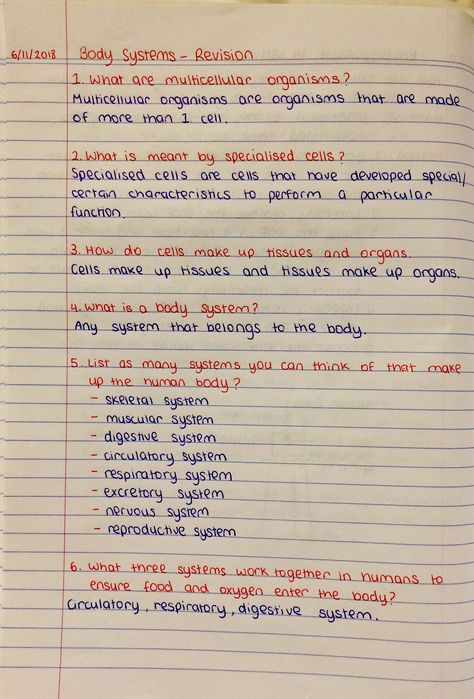 6/11/2018 Body Systems - Revision
1. What are multicellular organisms?
Multicellular organisms are organisms that are made
of more than 1 cell.
2. What is meant by specialised cells?
Specialised cells are cells that have developed special/
certain characteristics to perform a particular
function.
3. How do cells make up tissues and organs.
Cells make up tissues and tissues make up organs.
4. What is a body system?
Any system that belongs to the body.
5. List as many systems you can think of that make
up the human body?
- skeletal system
- muscular system
- digestive system
- circulatory system
- respiratory system
- excretory system
- nervous system
- reproductive system
6. What three systems work together in humans to
ensure food and oxygen enter the body?
Circulatory, respiratory, digestive system.